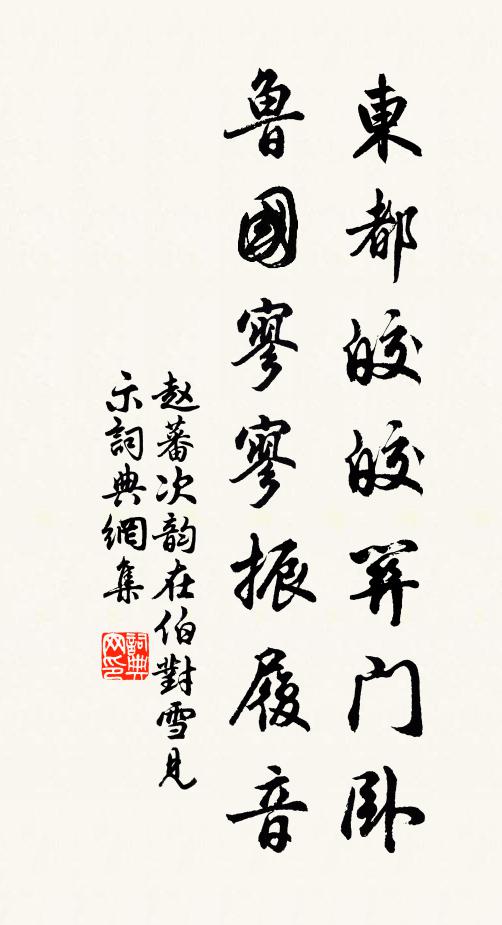 東都皎皎關门卧
魯國寥寥振履音
赵蕃次韵在伯對雪見
示詞典網集
詞典
网印